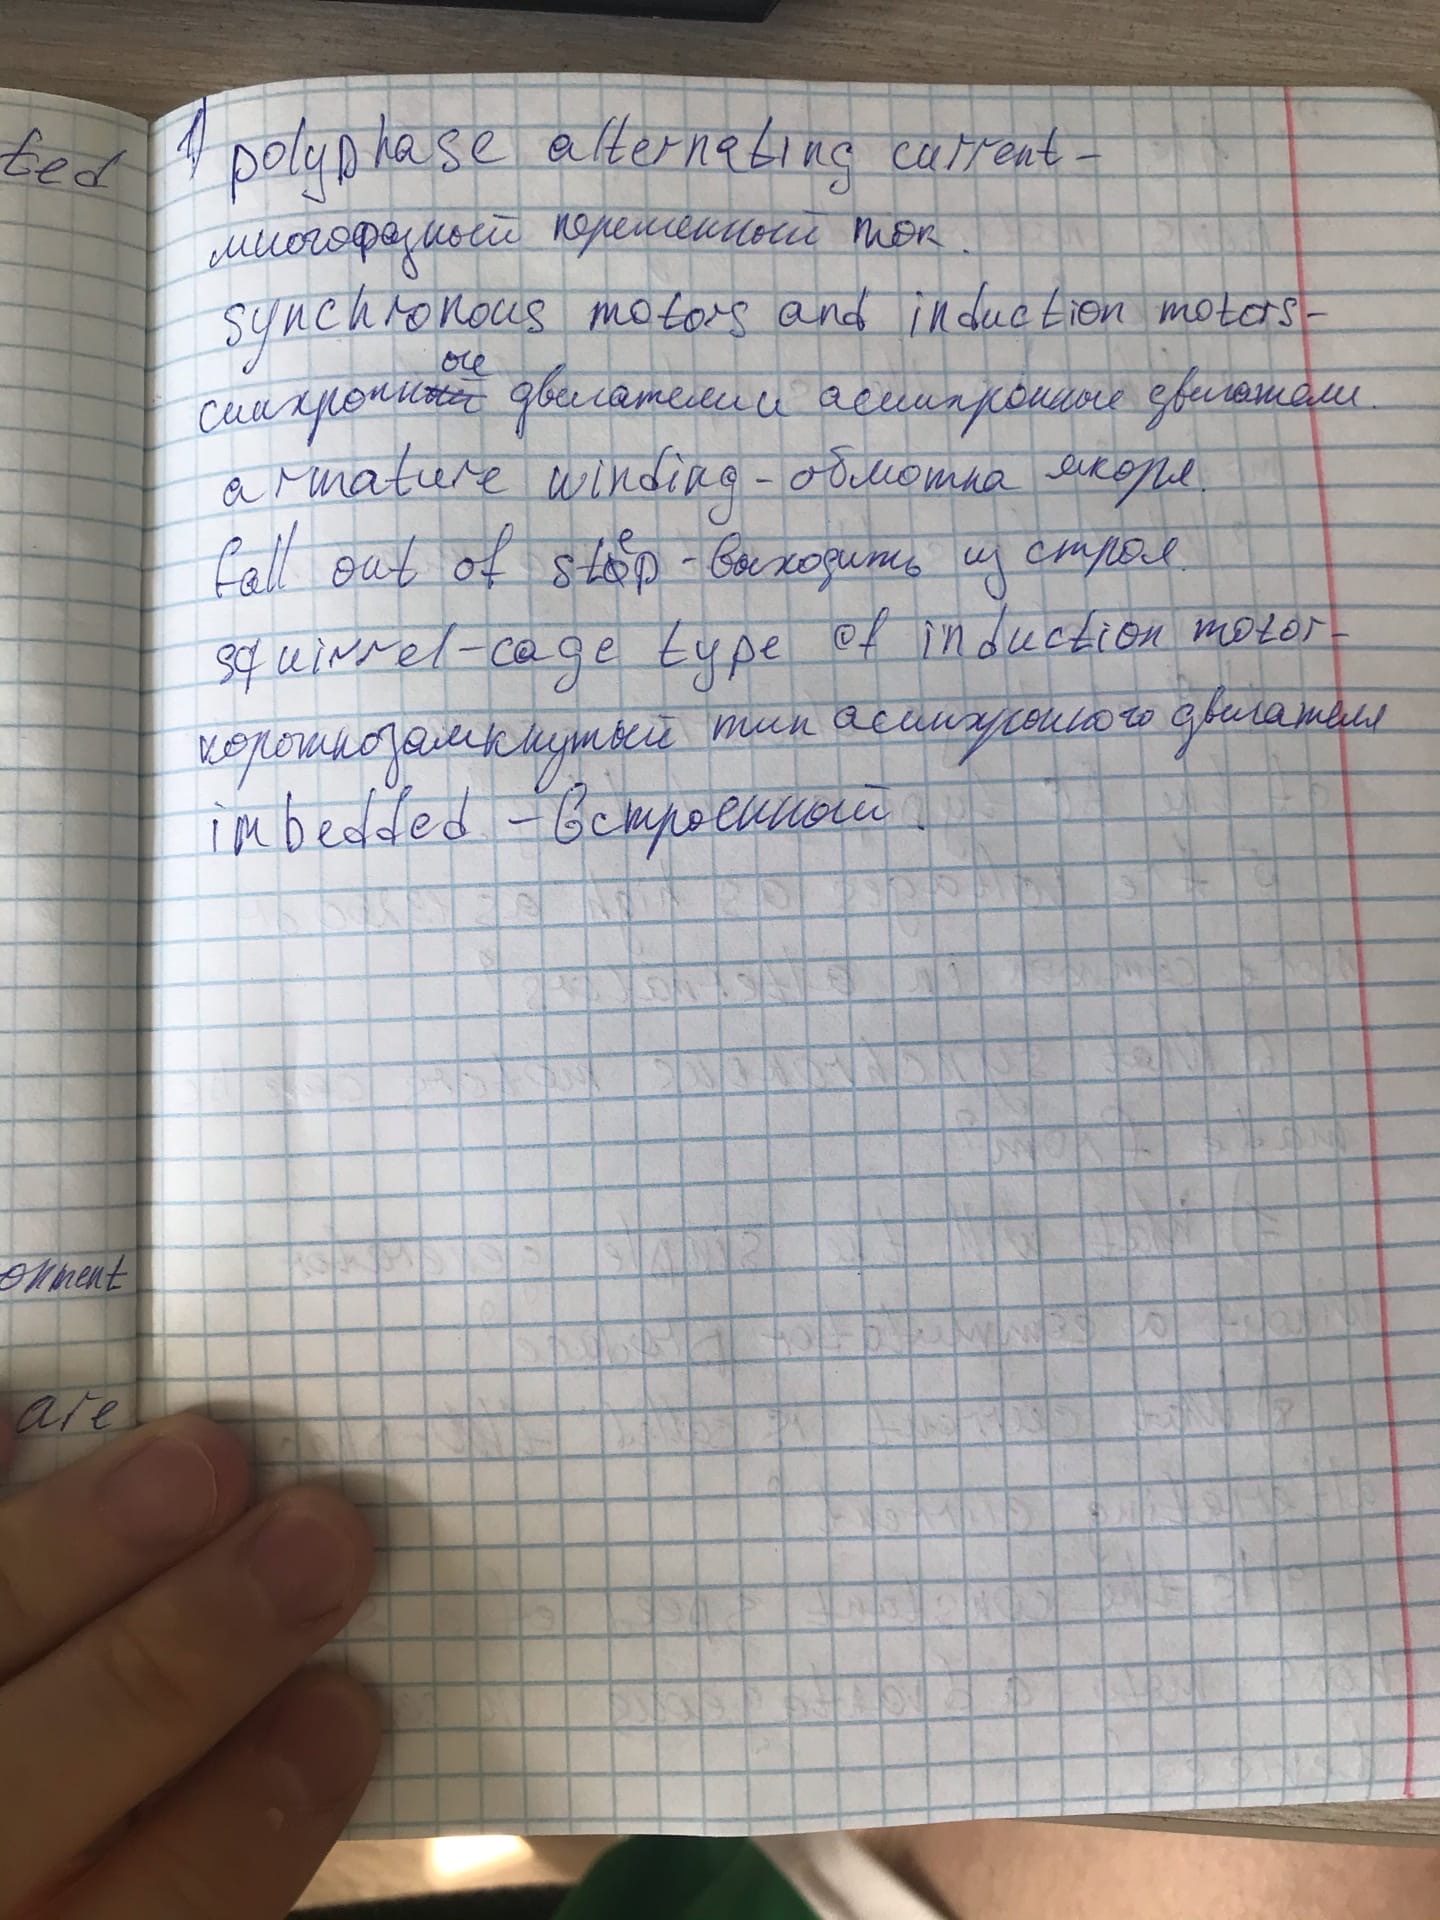 ted
1) polyphase alternating current -
многофазный переменный ток.
synchronous motors and induction motors -
синхронные двигатели и асинхронные двигатели.
armature winding - обмотка якоря.
fall out of step - выходить из строя.
squirrel-cage type of induction motor -
короткозамкнутый тип асинхронного двигателя
imbedded - встроенный.
onment
are